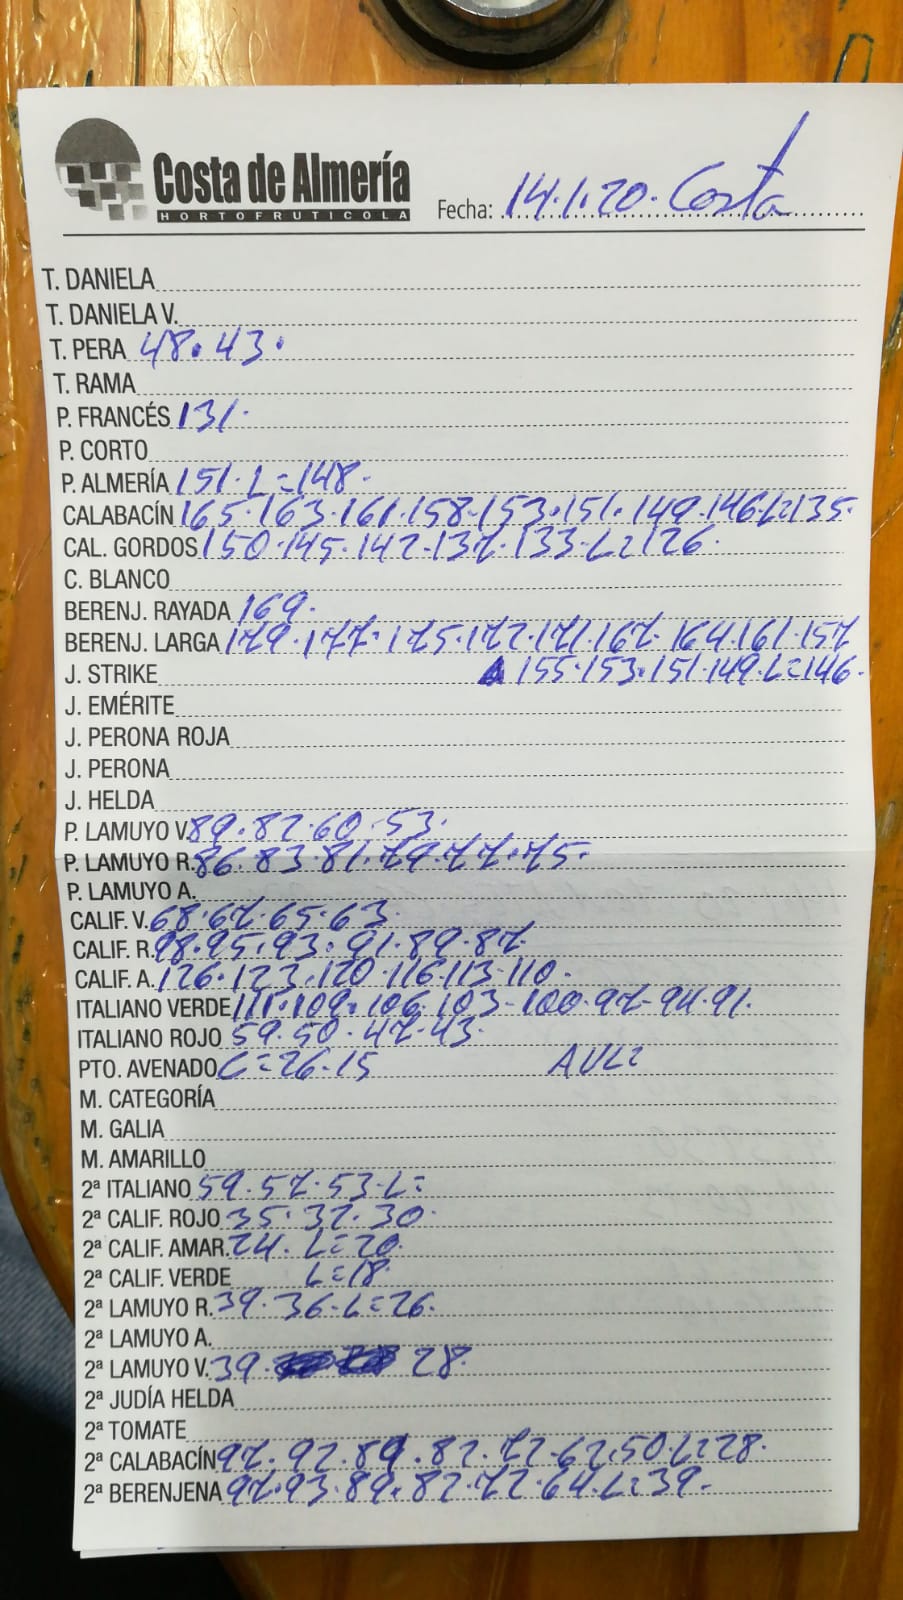 Costa de Almería
HORTOFRUTICOLA
Fecha: 14.1.20. Costa
T. DANIELA
T. DANIELA V.
T. PERA 48. 43.
T. RAMA
P. FRANCÉS 131.
P. CORTO
P. ALMERÍA 151. L=148.
CALABACÍN 165.163.161.158.153.151.149.146.L=135.
CAL. GORDOS 150.145.142.137.133.L=126.
C. BLANCO
BERENJ. RAYADA 169.
BERENJ. LARGA 179.177.175.172.171.167.164.161.157
J. STRIKE 155.153.151.149.L=146.
J. EMÉRITE
J. PERONA ROJA
J. PERONA
J. HELDA
P. LAMUYO V. 89.82.60.53.
P. LAMUYO R. 86.83.81.79.77.75.
P. LAMUYO A.
CALIF. V. 68.67.65.63.
CALIF. R. 98.95.93.91.89.87
CALIF. A. 126.123.120.116.113.110.
ITALIANO VERDE 111.109.106.103.100.97.94.91.
ITALIANO ROJO 59.50.47.43.
PTO. AVENADO L=26.15
M. CATEGORÍA
M. GALIA
M. AMARILLO
2ª ITALIANO 59.57.53.L=
2ª CALIF. ROJO 35.32.30.
2ª CALIF. AMAR. 24. L=20.
2ª CALIF. VERDE L=18.
2ª LAMUYO R. 39.36.L=26.
2ª LAMUYO A.
2ª LAMUYO V. 39. 28.
2ª JUDÍA HELDA
2ª TOMATE
2ª CALABACÍN 97.92.89.82.72.62.50.L=28.
2ª BERENJENA 97.93.89.82.72.64.L=39.